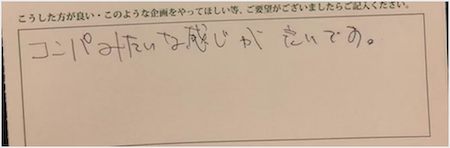 こうした方が良い・このような企画をやってほしい等、ご要望がございましたらご記入ください。
コンパみたいな感じが良いです。